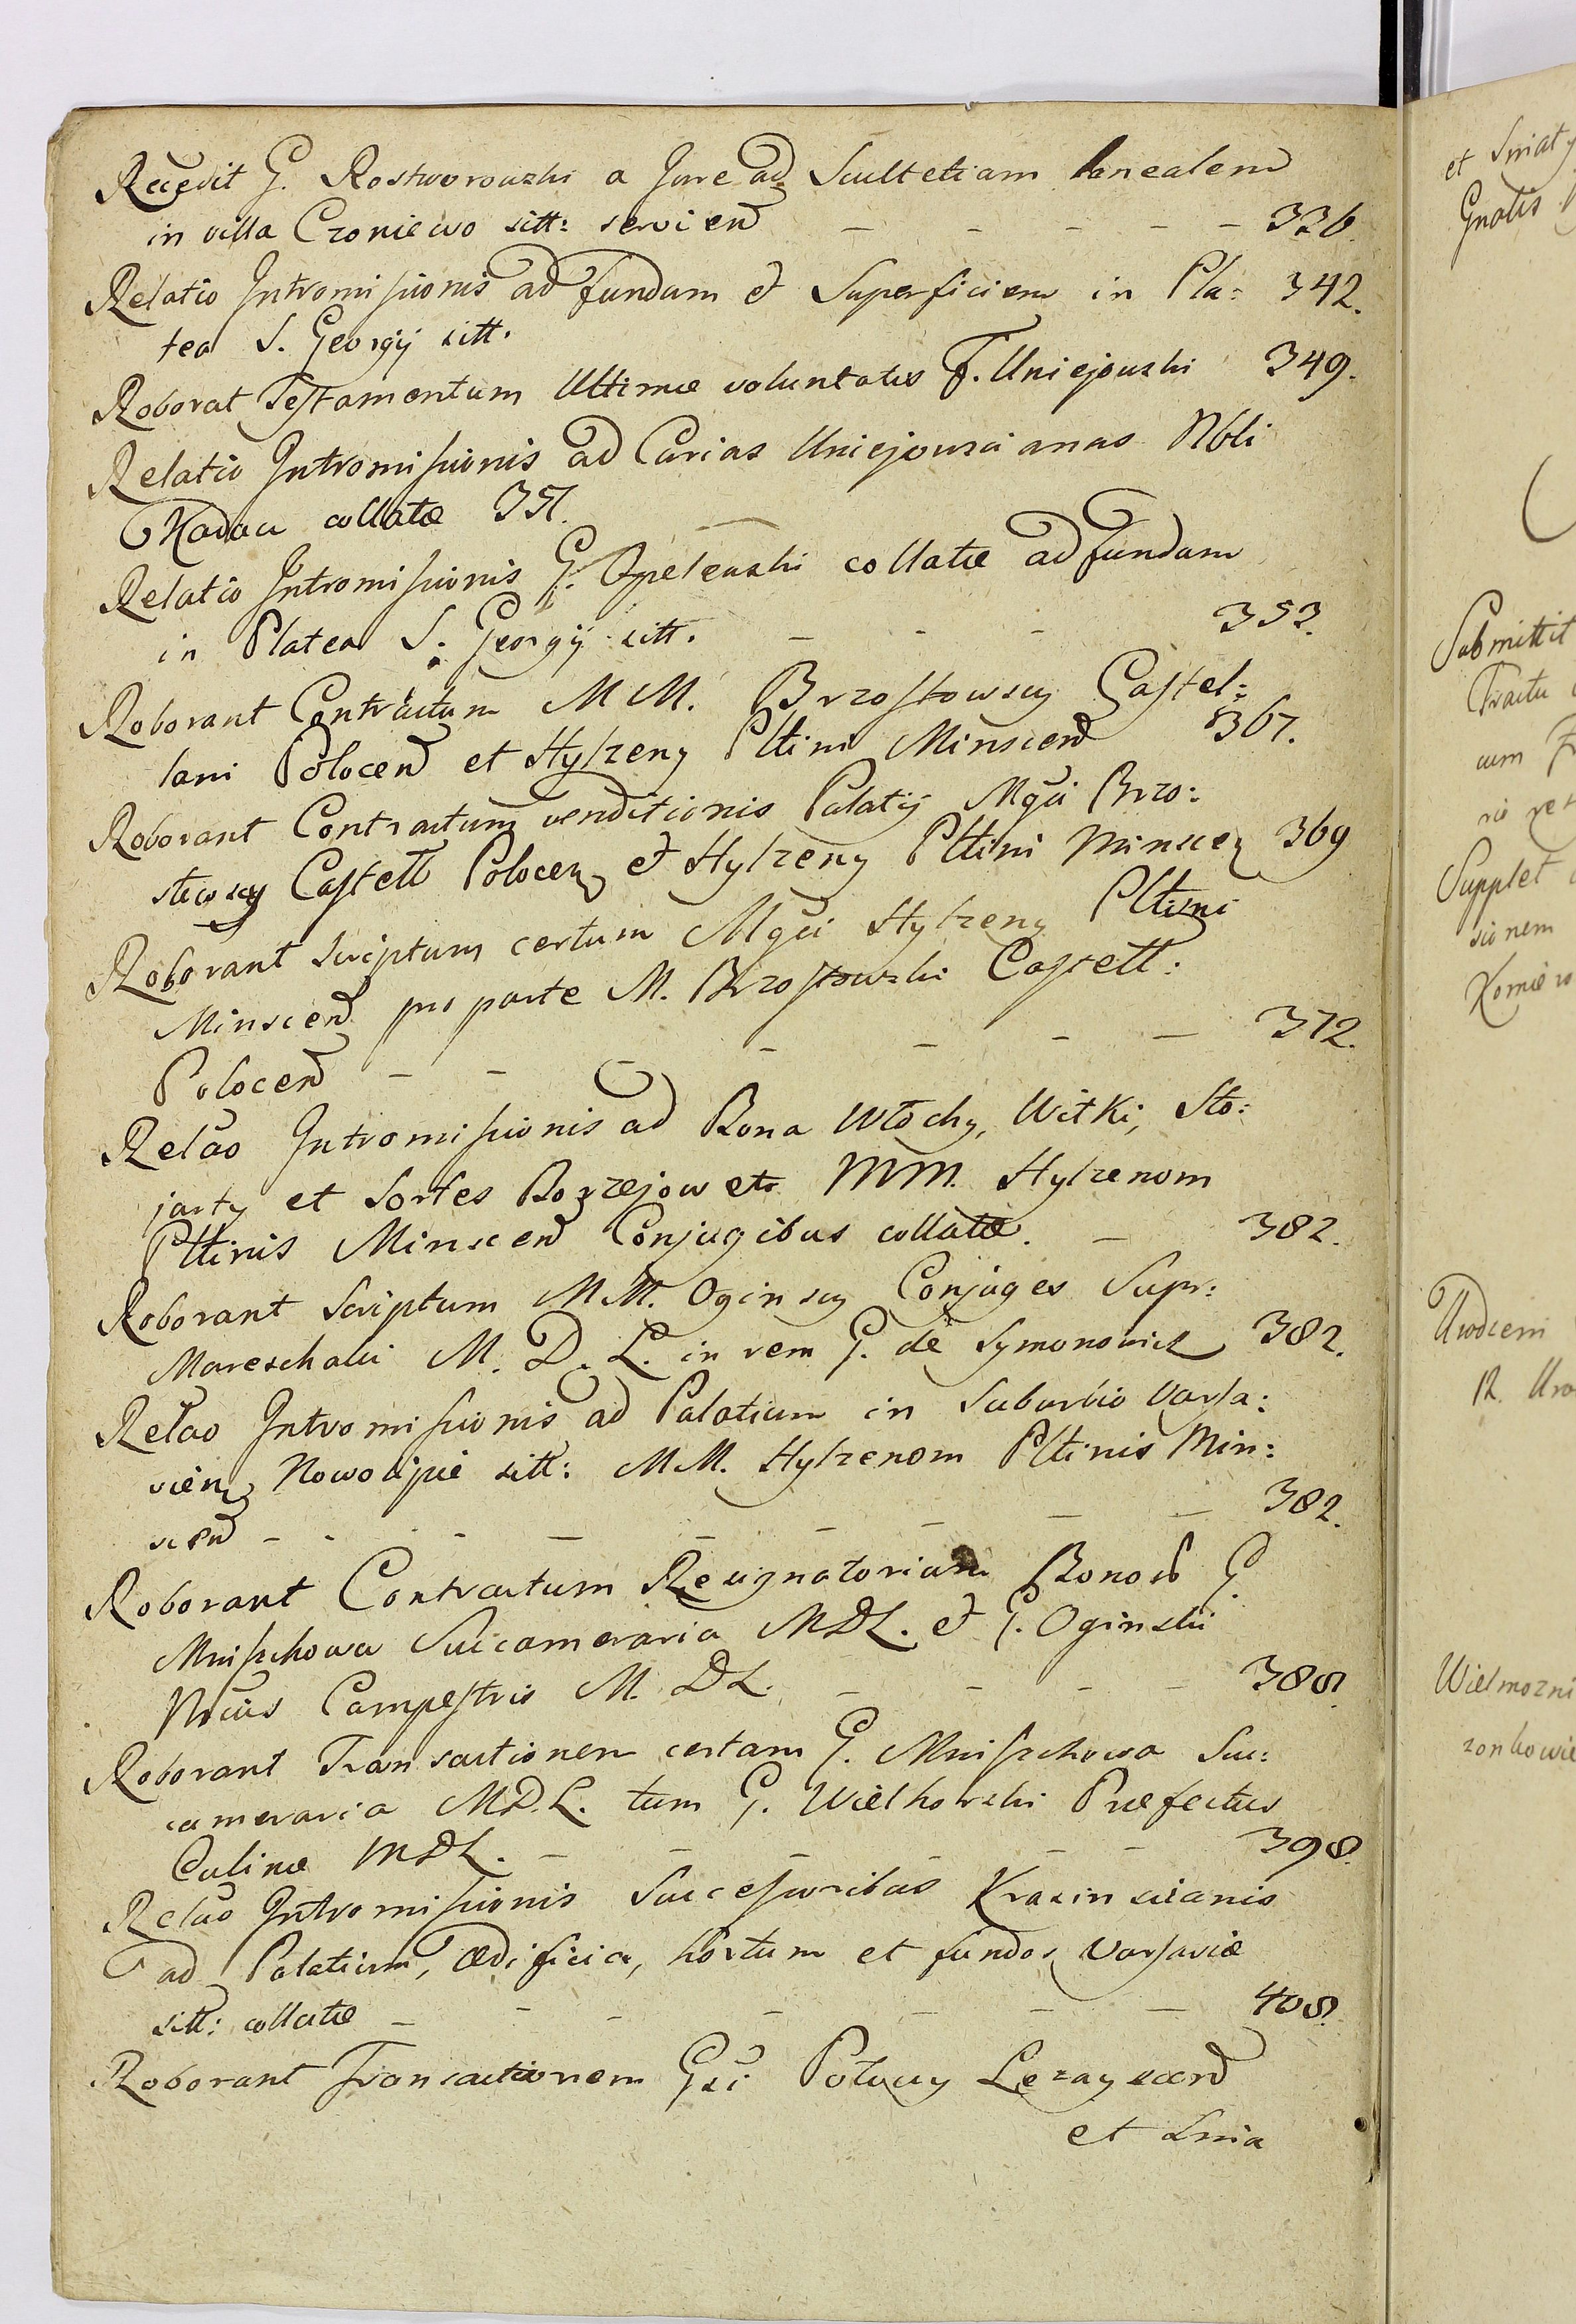 Recedit G. Rostworowski a Jure ad Scultetiam lanealem
in villa Czoniewo sitt: servien — — — — — 336.
Relatio Intromissionis ad fundum et Superficiem in Pla: 342.
tea S. Georgij sitt.
Roborat Testamentum Ultimæ voluntatis F. Uniejowski 349.
Relatio Intromissionis ad Curias Uniejowscianas Nbli
Kadau collatæ 351.
Relatio Intromissionis G. Opelewski collatæ ad fundum
in Platea S. Georgij sitt. — — — 353.
Roborant Contractum MM. Brzostowscy Castel:
lani Polocen et Hylzeny Pltini Minscen 367.
Roborant Contractum venditionis Palatij Mgci Brzo:
stowscy Castell Polocen et Hylzeny Pltini Minscen 369
Roborant scriptum certum Mgci Hylzeny Pltini
Minscen pro parte M. Brzostowski Castell:
Polocen — — — — — — — 372.
Relao Intromissionis ad Bona Włochy, Witki, Sto:
jarty et Sortes Bozzejow etc MM. Hylzenom
Pltinis Minscen Conjugibus collatæ. — 382.
Roborant Scriptum MM. Oginscy Conjuges Supr:
Mareschalci M. D. L. in rem G. de Symonowicz 382.
Relao Intromissionis ad Palatium in Suburbio Varsa:
vien Nowolipie sitt: MM. Hylzenom Pltinis Min:
scen — — — — — — — — — 382.
Roborant Contractum Resignatorium Bonor G.
Mniszchowa Succameraria MDL. et G. Oginski
Nrius Campestris M. DL. — — — — 388.
Roborant Transactionem certam G. Mniszchowa Suc:
cameraria MD.L. tum G. Wielhorski Præfectus
Culinæ MDL. — — — — — — 398.
Relao Intromissionis Successoribus Krasinscianis
ad Palatium, ædificia, hortum et fundos Varsaviæ
sitt: collatæ — — — — — — — 408.
Roborant Transactionem Gsi Potoccy Lezayscen
et Snia
et Sniaty
Gnatis
Submittit
Tractu
cum
Supplet
sionem
Urodzeni
12. Uro
Wielmozni